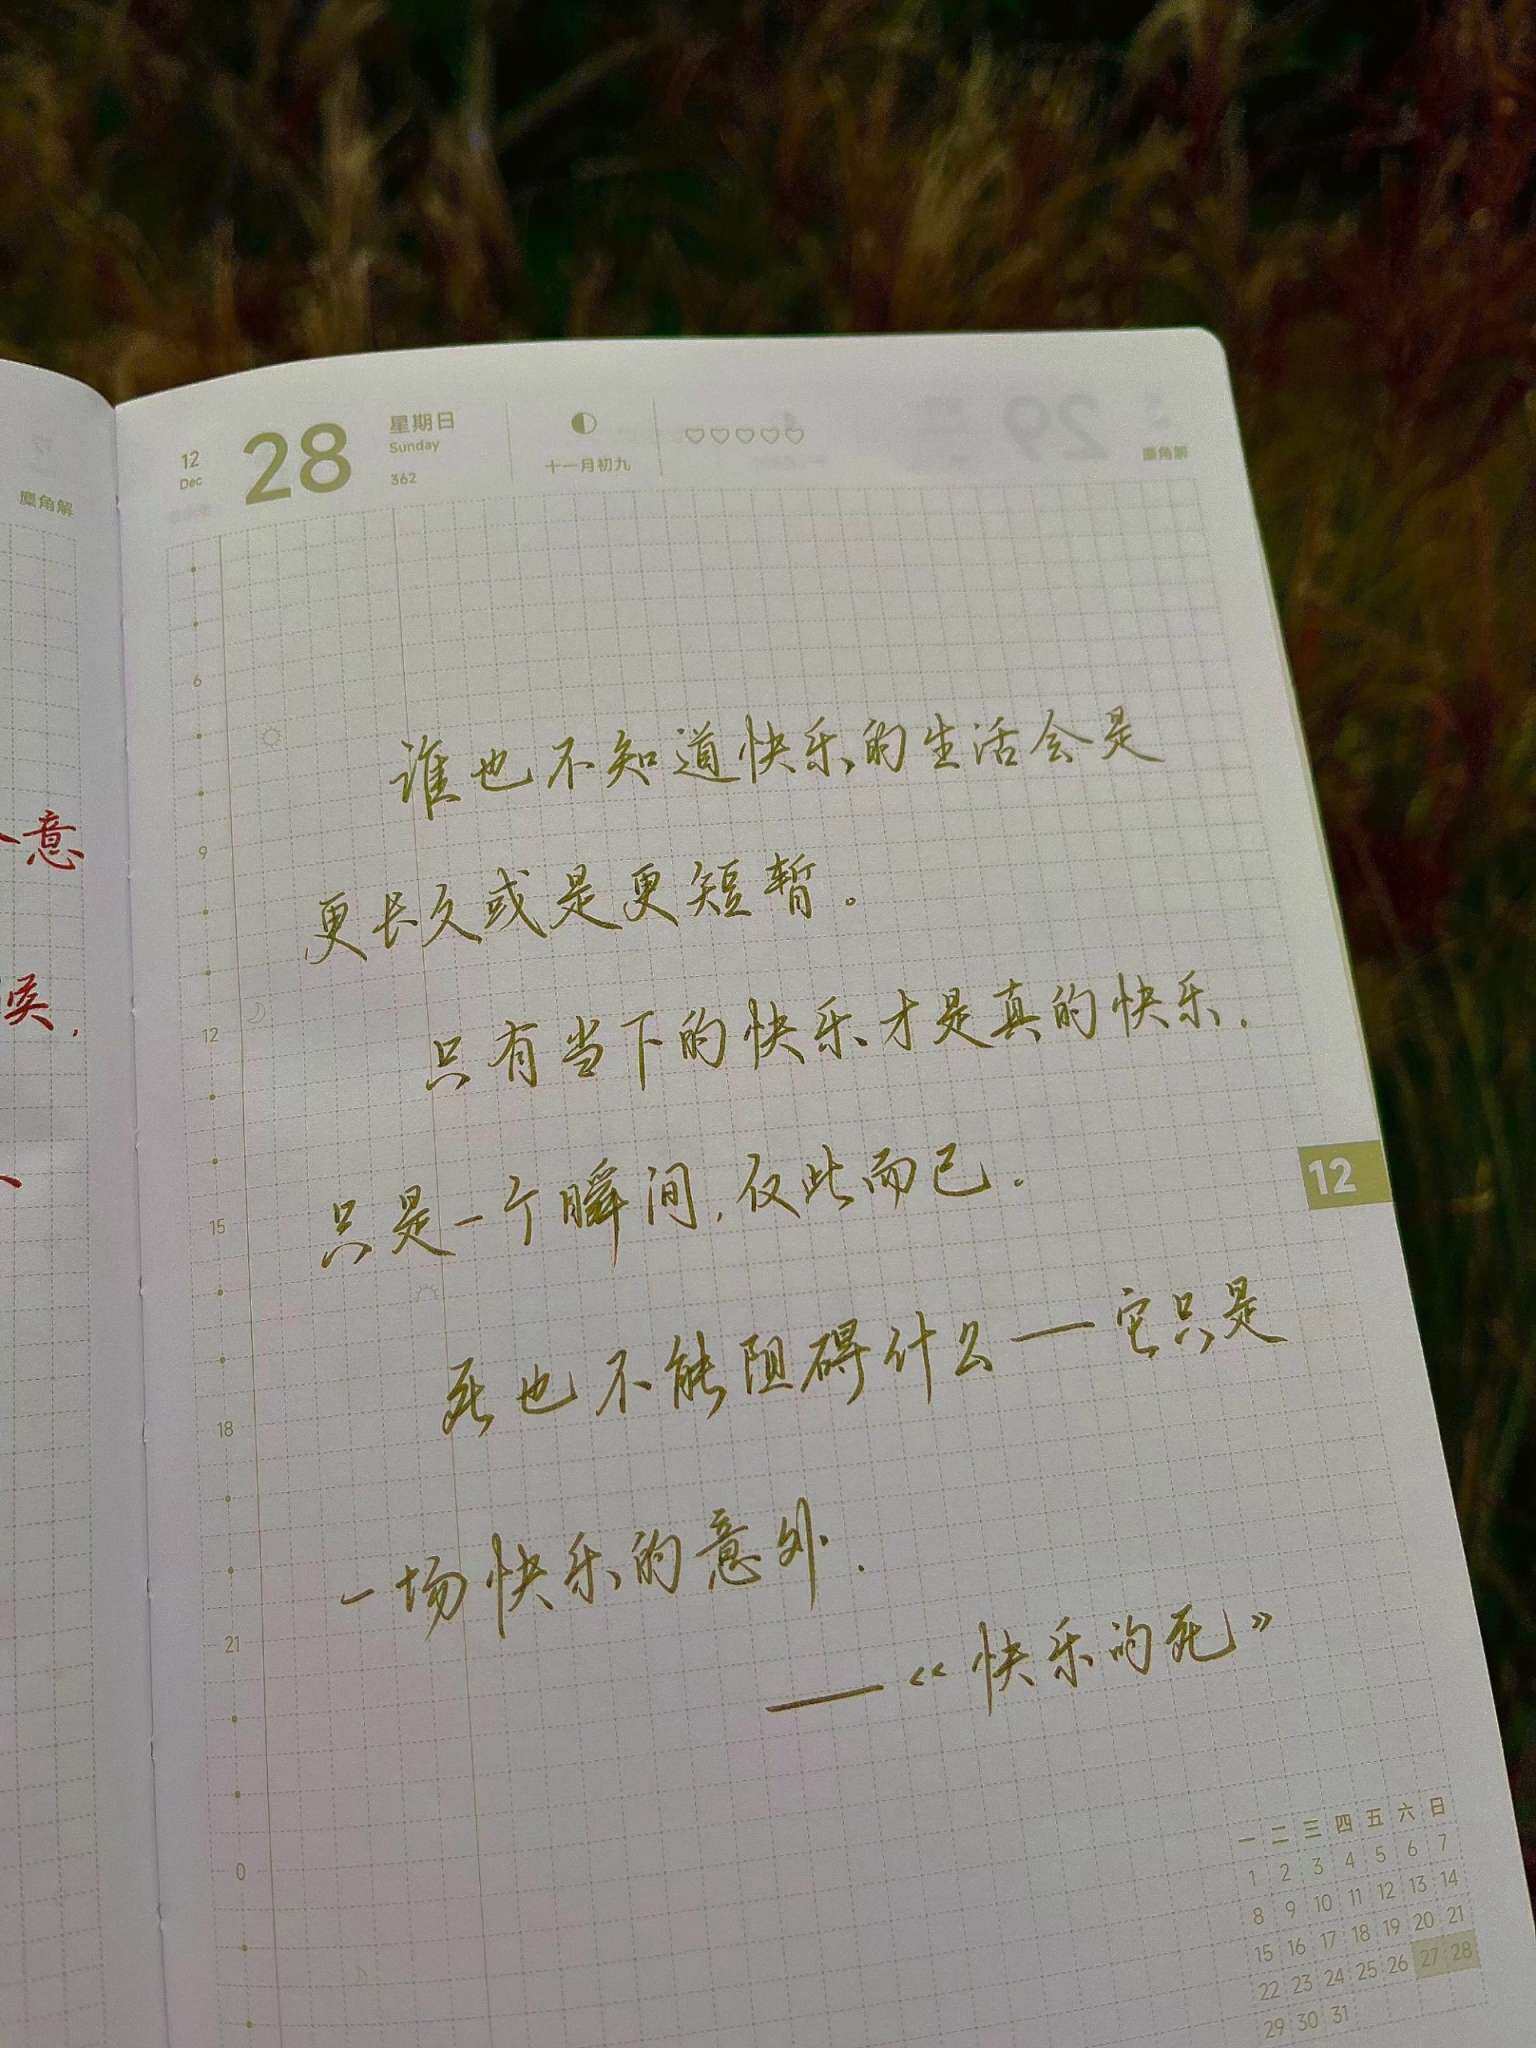 12
Dec
28
星期日
Sunday
362
十一月初九
麋角解
麋角解
6
9
12
15
18
21
0
谁也不知道快乐的生活会是
更长久或是更短暂。
只有当下的快乐才是真的快乐.
只是一个瞬间,仅此而已.
死也不能阻碍什么——它只是
一场快乐的意外.
——《快乐的死》
意
12
一 二 三 四 五 六 日
1 2 3 4 5 6 7
8 9 10 11 12 13 14
15 16 17 18 19 20 21
22 23 24 25 26 27 28
29 30 31